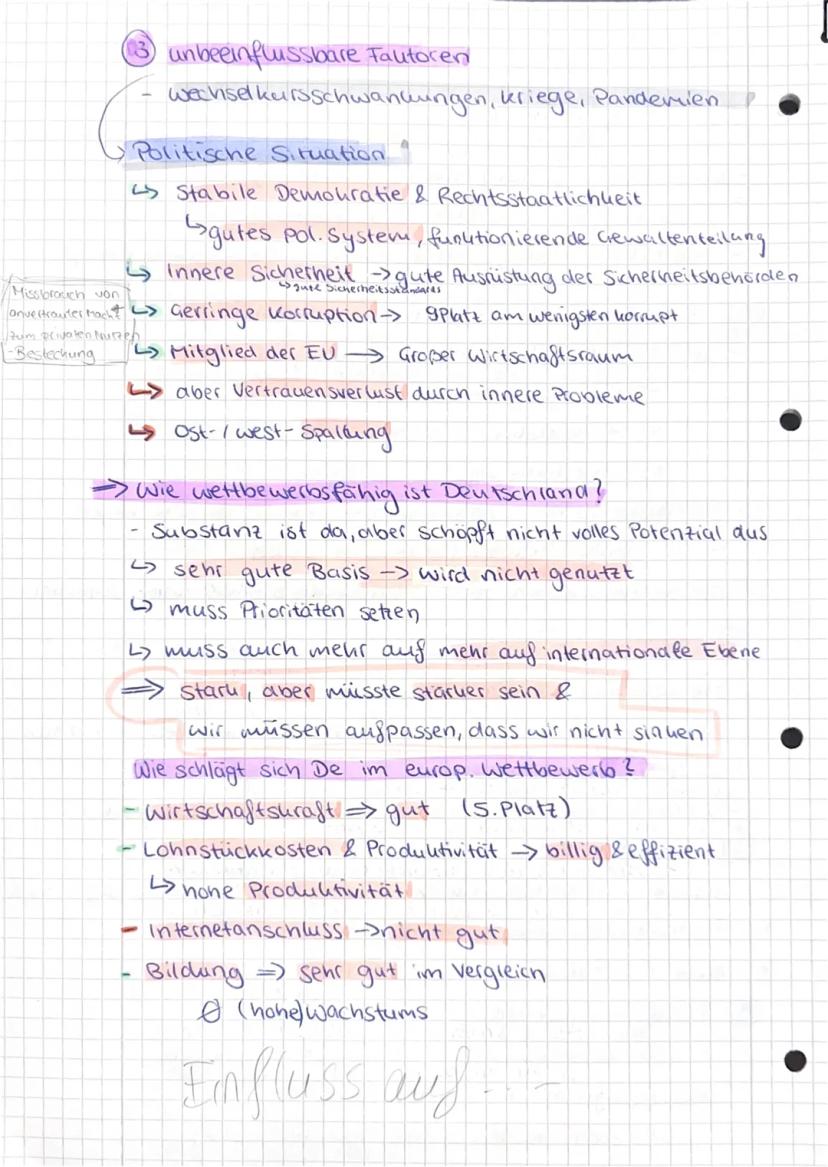 ③ unbeeinflussbare Faktoren
- Wechselkursschwankungen, Kriege, Pandemien
Politische Situation
↳ Stabile Demokratie & Rechtsstaatlichkeit
↳ gutes pol. System, funktionierende Gewaltenteilung
↳ Innere Sicherheit → gute Ausrüstung der Sicherheitsbehörden
↳ gute Sicherheitsstandards
Missbrauch von
anvertrauter Macht
zum privaten Nutzen
-Bestechung
↳ Gerringe Korruption → 9Platz am wenigsten korrupt
↳ Mitglied der EU → Großer Wirtschaftsraum
↳ aber Vertrauensverlust durch innere Probleme
↳ Ost-/West-Spaltung
⇒ Wie wettbewerbsfähig ist Deutschland?
- Substanz ist da, aber schöpft nicht volles Potenzial aus
↳ sehr gute Basis → wird nicht genutzt
↳ muss Prioritäten setzen
↳ muss auch mehr auf mehr auf internationale Ebene
⇒ stark, aber müsste stärker sein &
wir müssen aufpassen, dass wir nicht sinken
Wie schlägt sich De im europ. Wettbewerb?
- Wirtschaftskraft ⇒ gut (5.Platz)
- Lohnstückkosten & Produktivität → billig & effizient
↳ hohe Produktivität
- Internetanschluss → nicht gut
- Bildung ⇒ sehr gut im Vergleich
Ø (hohe) Wachstums
Einfluss auf ...-